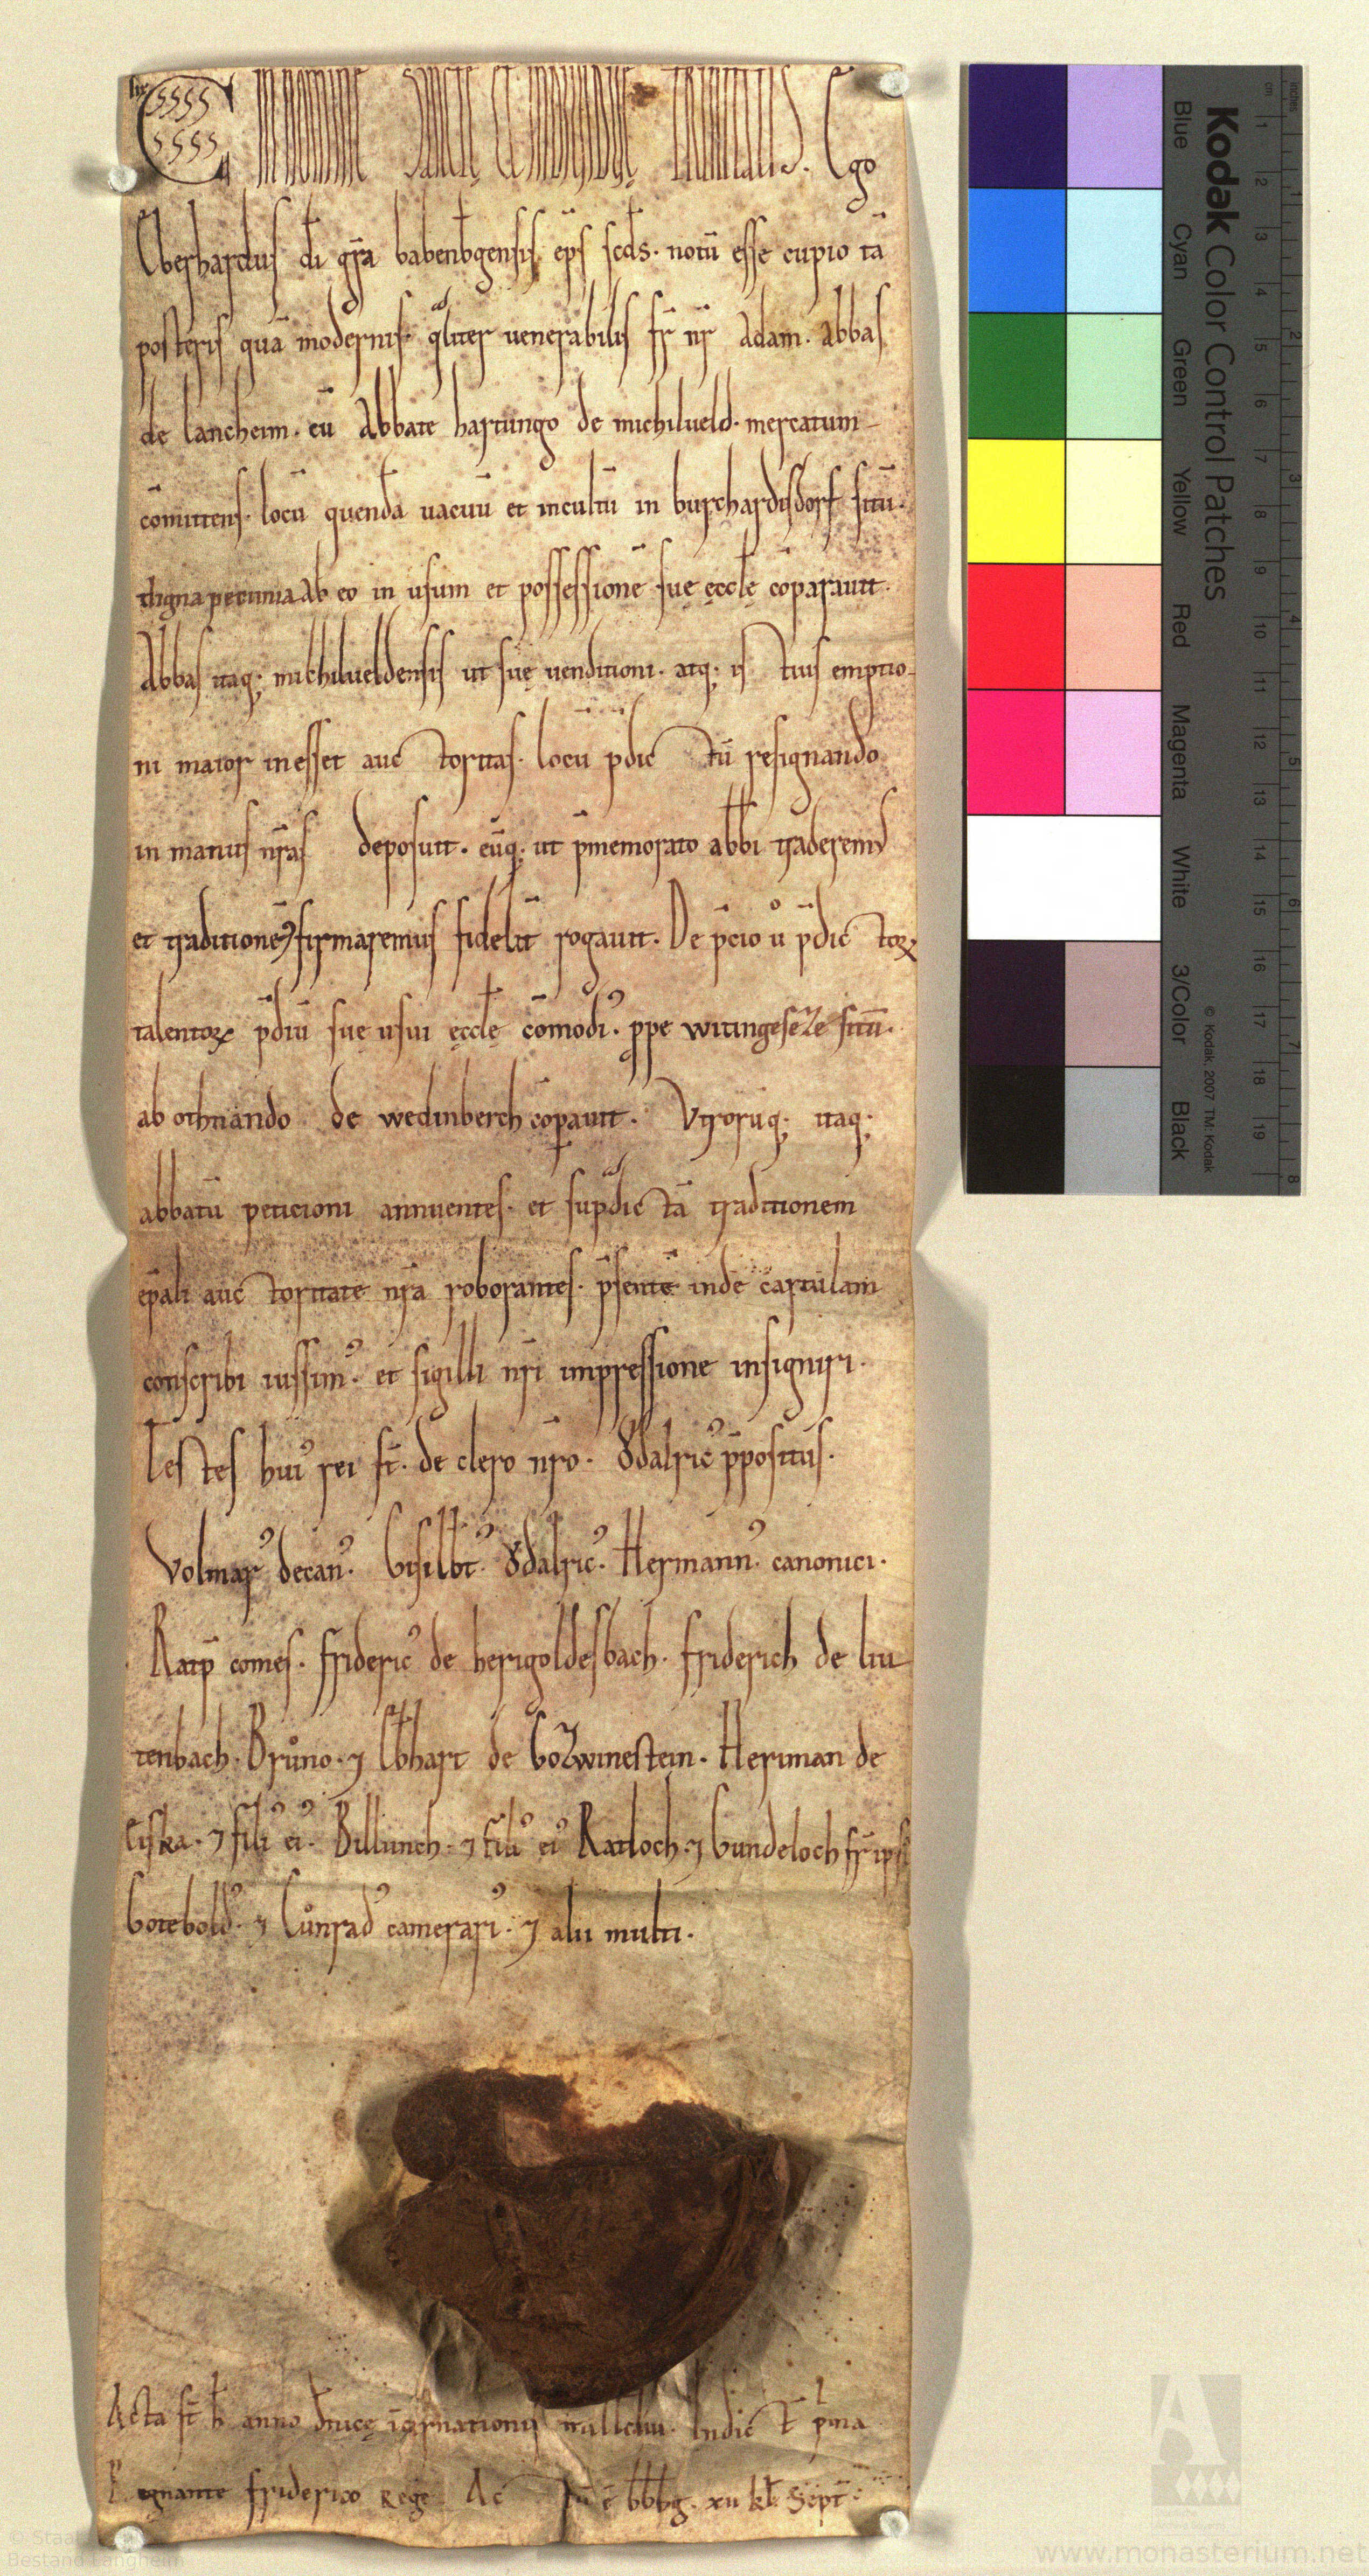 IN NOMINE SANCTĘ ET INDIVIDUĘ TRINITATIS. Ego
Eberhardus d̄i gr̄a babenb̄gensis ep̄s sc̄ds. notū esse cupio tā
posteris quā modernis. q̄liter uenerabilis fr̄ nr̄ Adam. abbas
de lancheim. cū Abbate hartungo de michilueld. mercatum
cōmittens. locū quendā uacuū et incultū in burchardisdorf sitū.
digna pecunia ab eo in usum et possessionē suę ęcclę cōparauit.
Abbas itaq; michilueldensis ut suę uenditioni. atq; istius emptio-
ni maior inesset auctoritas. locū p̄dictū resignando
in manus nr̄as deposuit. eūq; ut p̄memorato abb̄i traderem᷒
et traditionē ꝯfirmaremus fidelit̄ rogauit. De p̄cio u̾ p̄dictoꝝ
talentoꝝ p̄diū suę usui ęcclę cōmodū. ꝓpe witingeseze sitū.
ab othnando de wedinberch cōparauit. Vtrorūq; itaq;
abbatū peticioni annuentes. et sup̄dictā traditionem
ep̄ali auctoritate nr̄a roborantes. p̄sentē inde cartulam
conscribi iussim᷒. et sigilli nr̄i impressione insigniri.
Testes hui᷒ rei st̄. de clero nr̄o. Ǒdalric᷒ p̄positus.
Volmar᷒ decan᷒. Gisilb̄t᷒. Ǒdalric᷒. Hermann᷒. canonici.
Ratp̄ comes. Frideric᷒ de herigoldesbach. friderich de liu
tenbach. Brůno. ⁊ Eb̄hart de bozwinestein. Heriman de
Ciska. ⁊ fili᷒ ei᷒. Billunch. ⁊ fili᷒ ei᷒ Ratloch. ⁊ Gundeloch fr̄ ipsi᷒
Gotebold᷒. ⁊ Cůnrad᷒ camerari᷒. ⁊ alii multi.
Acta st̄ h̄ anno dn̄icę īcarnationis mill̄ cliii. Indict̄ p̄ma
Regnante friderico Rege Actū ē bb̄bg. xii kl̄. Sept̄.
Kodak Color Control Patches
Blue Cyan Green Yellow Red Magenta White 3/Color Black
© Kodak, 2007 TM: Kodak
cm 1 2 3 4 5 6 7 8 9 10 11 12 13 14 15 16 17 18 19
inches 1 2 3 4 5 6 7 8
Bestand Langheim
www.monasterium.net